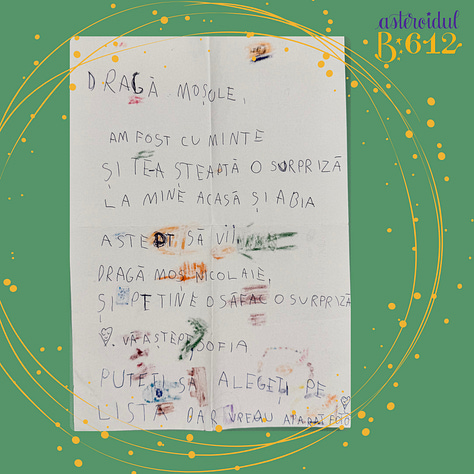 asteroidul
B:612
DRAGĂ MOȘULE,
AM FOST CU MINTE
ȘI TEA ȘTEAPTĂ O SURPRIZĂ
LA MINE ACASĂ ȘI ABIA
AȘTEPT SĂ VII
DRAGĂ MOȘ NICOLAIE,
ȘI PE TINE O SĂFAC O SURPRIZĂ
VA AȘTEPT SOFIA
PUTEȚI SĂ ALEGEȚI PE
LISTĂ DAR VREAU APARAT FOTO